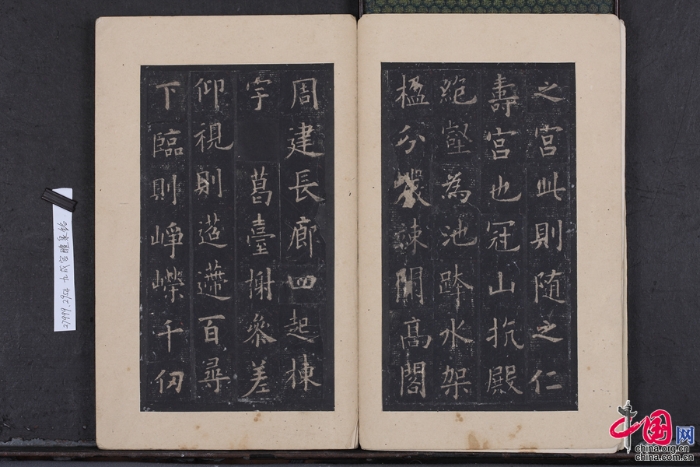 之宮此則随之仁
壽宮也冠山抗殿
絕壑為池跨水架
楹分巖竦闕高閣
周建長廊四起棟
宇 葛臺榭參差
仰視則迢遰百尋
下臨則崢嶸千仞
九成宮醴泉銘
中国网
china.org.cn
china.com.cn